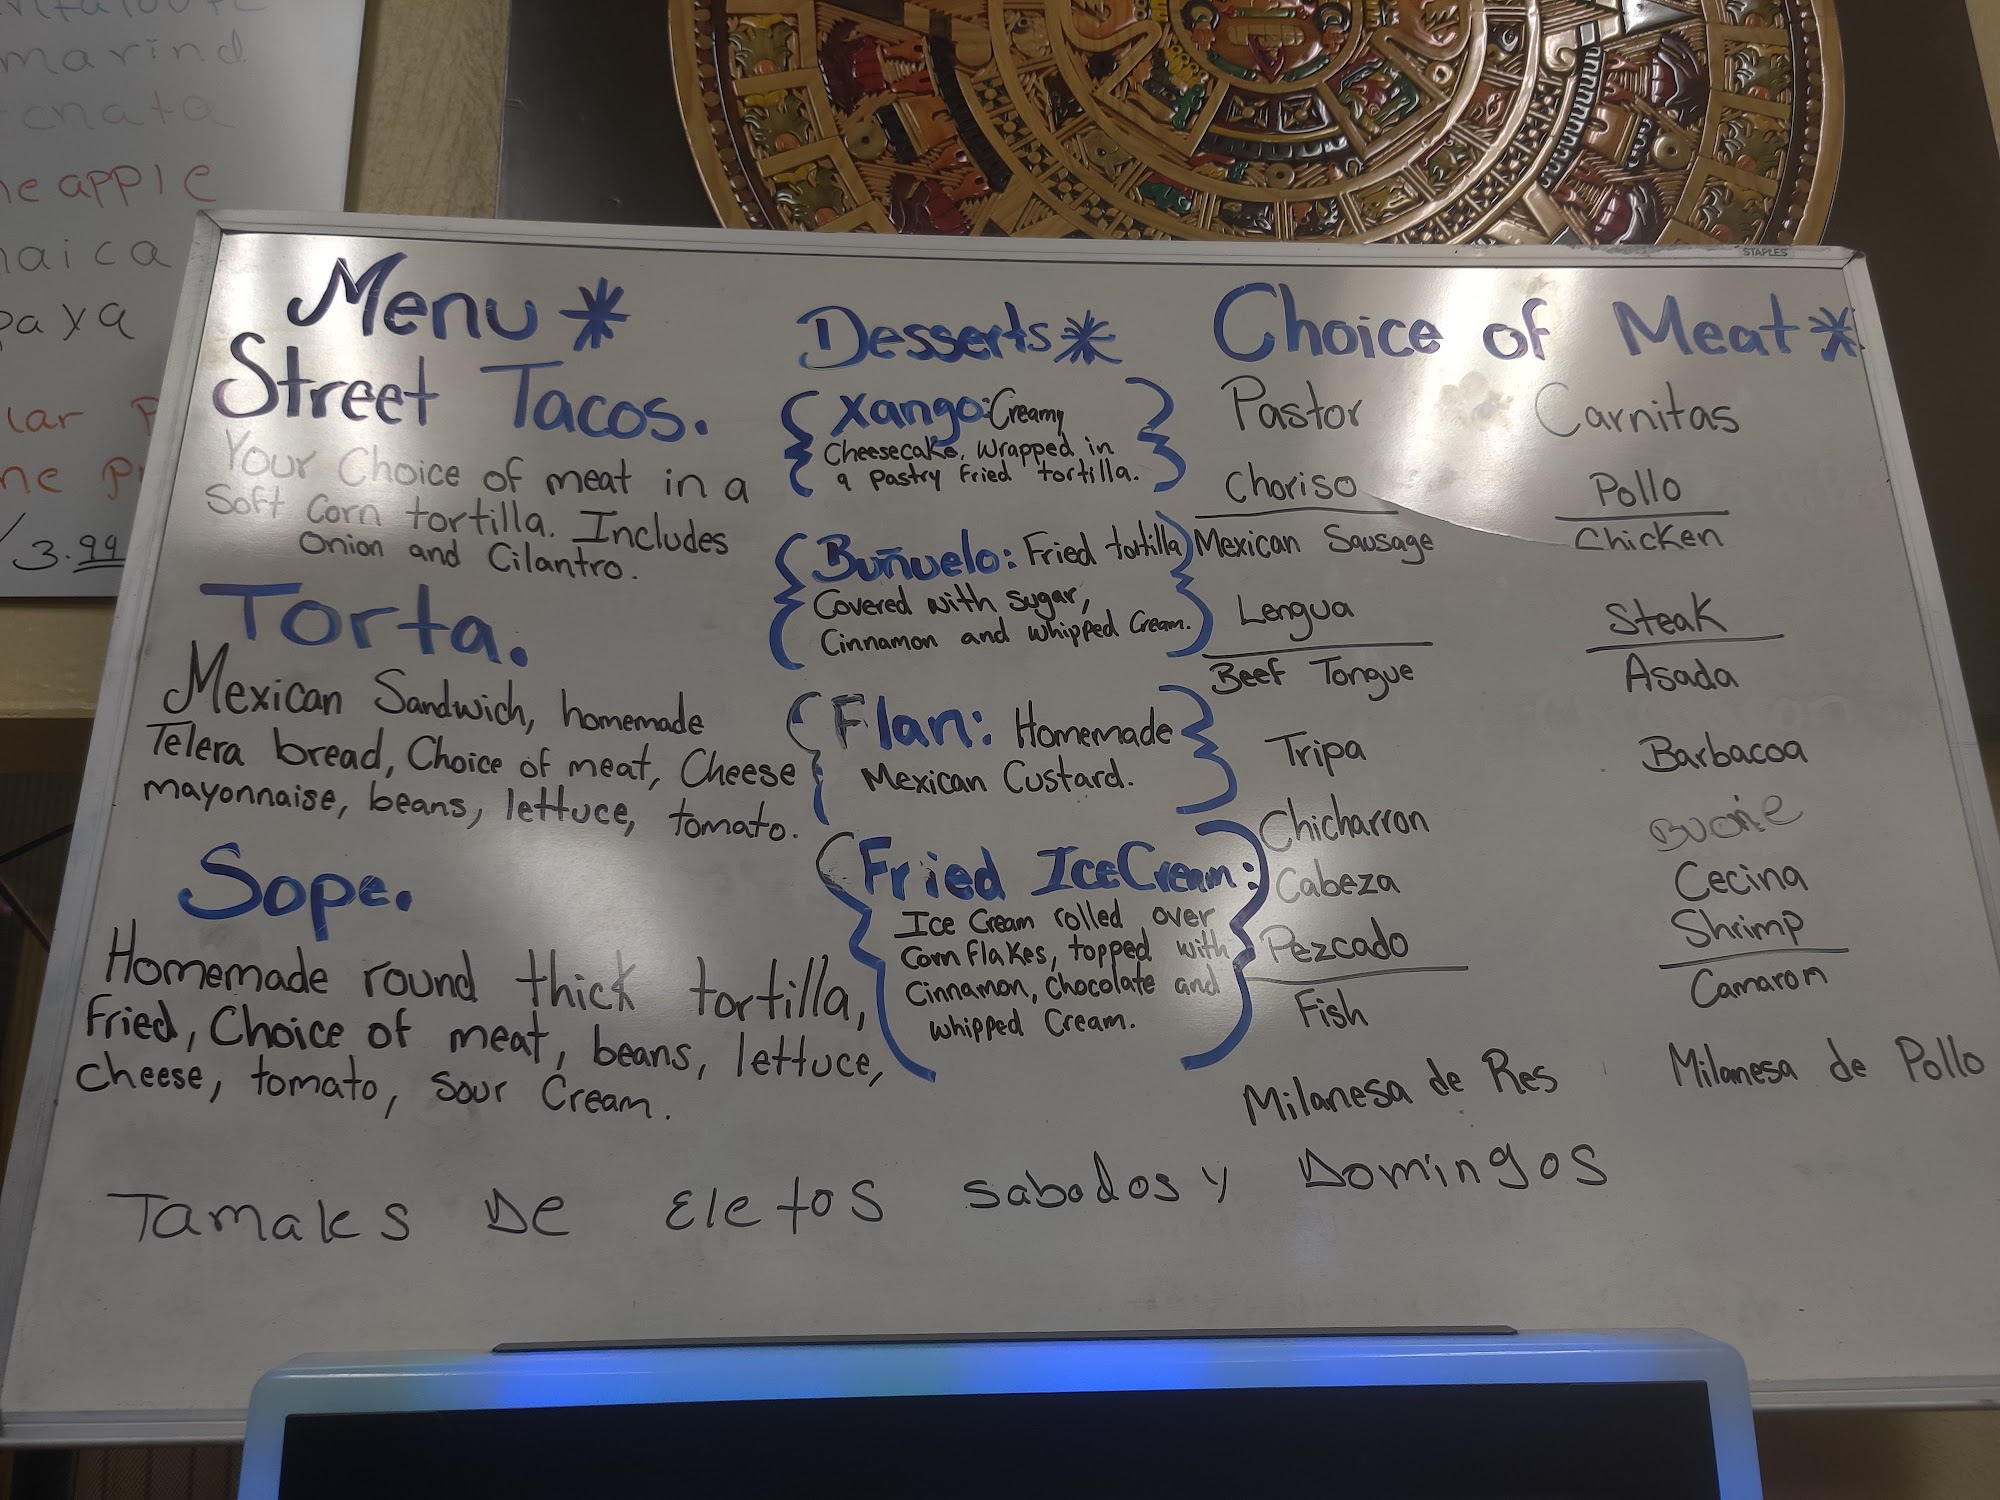 marind
apple
aica
aya
lar
3.99
STAPLES
Menu *
Street Tacos.
Your Choice of meat in a
Soft Corn tortilla. Includes
Onion and Cilantro.
Torta.
Mexican Sandwich, homemade
Telera bread, Choice of meat, Cheese
mayonnaise, beans, lettuce, tomato.
Sope.
Homemade round thick tortilla,
Fried, Choice of meat, beans, lettuce,
cheese, tomato, sour Cream.
Desserts *
Xango: Creamy
Cheesecake, Wrapped in
a pastry Fried tortilla.
Buñuelo: Fried tortilla
Covered with sugar,
Cinnamon and whipped Cream.
Flan: Homemade
Mexican Custard.
Fried IceCream:
Ice Cream rolled over
Corn Flakes, topped with
Cinnamon, Chocolate and
whipped Cream.
Choice of Meat *
Pastor Carnitas
Choriso Pollo
Mexican Sausage Chicken
Lengua Steak
Beef Tongue Asada
Tripa Barbacoa
Chicharron
Cabeza Cecina
Pezcado Shrimp
Fish Camaron
Milanesa de Res Milanesa de Pollo
Tamales De Eletos sabados y Domingos